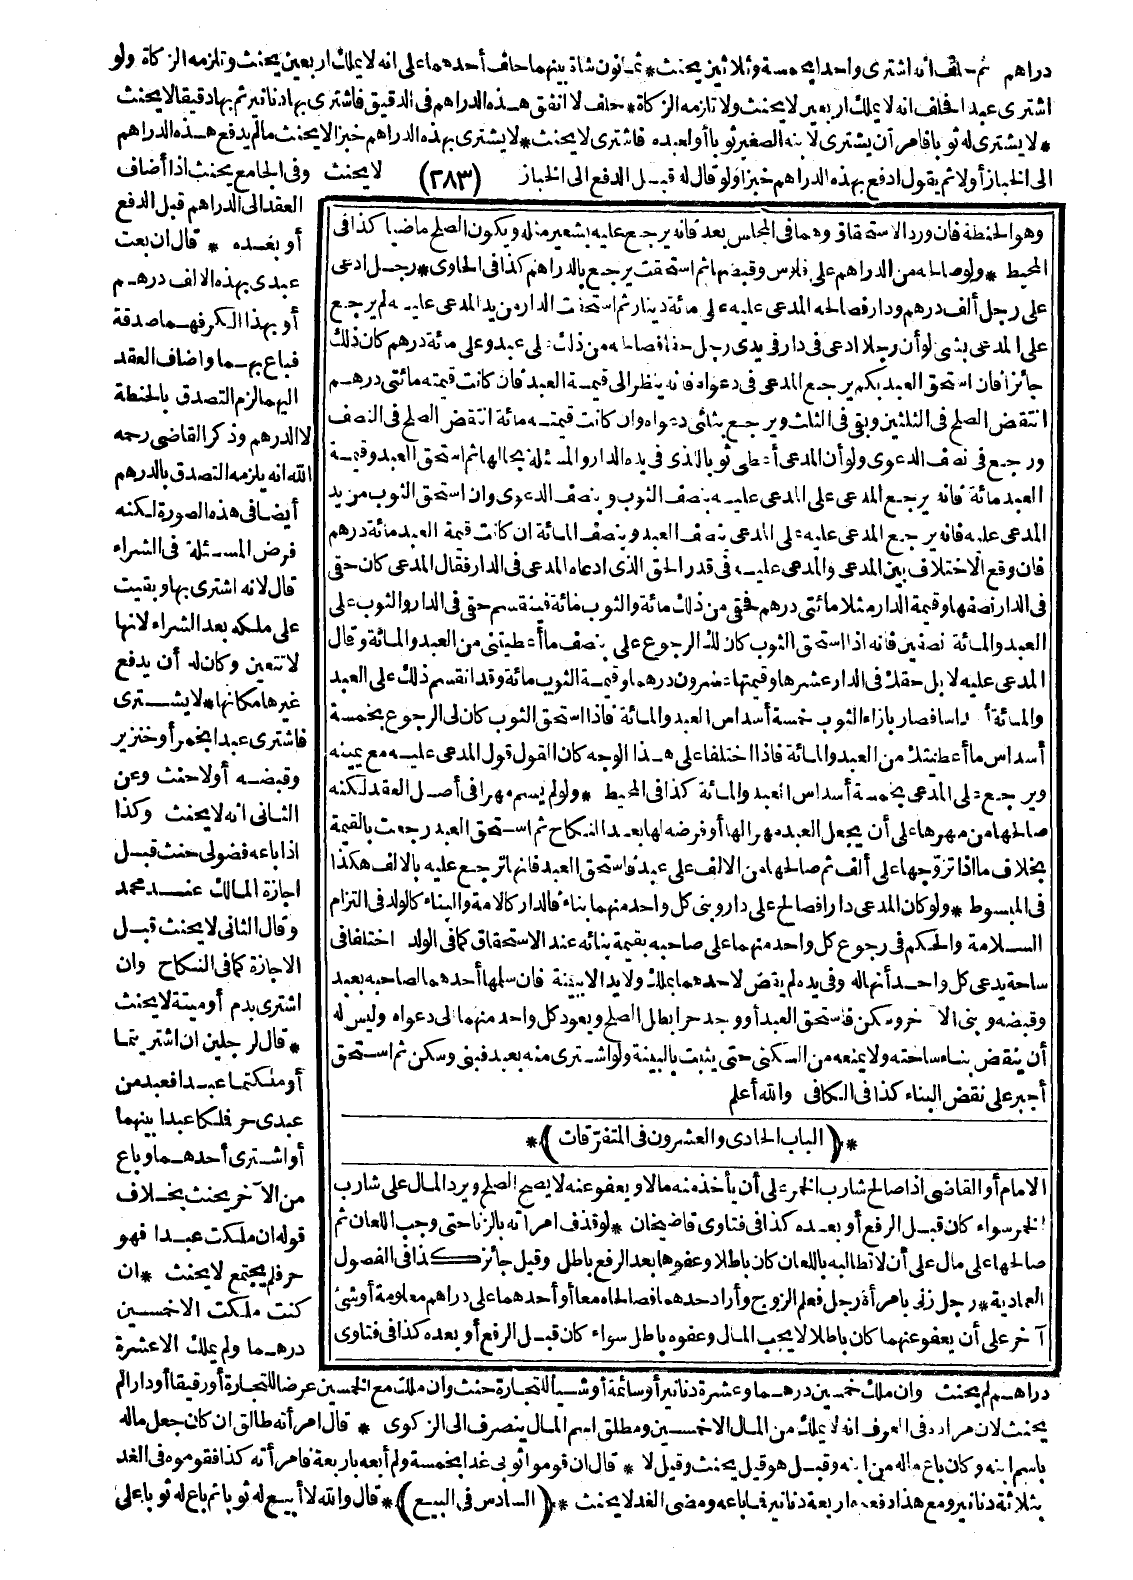 دراهم ثم حلف انه اشترى واحدا بخمسة وثلاثين يحنث * ثمانون شاة بينهما حلف أحدهما على انه لا يملك اربعين يحنث وتلزمه الزكاة ولو
اشترى عبدا فحلف انه لا يملك اربعين لا يحنث ولا تلزمه الزكاة * حلف لا انفق هذه الدراهم فى الدقيق فاشترى بها دنانير ثم بها دقيقا لا يحنث
* لا يشترى له ثوبا فامر أن يشترى لابنه الصغير ثوبا أو لعبده فاشترى لا يحنث * لا يشترى بهذه الدراهم خبزا لا يحنث ما لم يدفع هذه الدراهم
الى الخباز أولا ثم يقول ادفع بهذه الدراهم خبزا ولو قال له قبل الدفع الى الخباز (٢٨٣) لا يحنث وفى الجامع يحنث اذا أضاف
العقد الى الدراهم قبل الدفع
أو بعده * قال ان بعت
عبدى بهذه الالف درهم
أو بهذا الكر فهما صدقة
فباع بهما واضاف العقد
اليهما لزم التصدق بالحنطة
لا الدرهم وذكر القاضى رحمه
الله انه يلزمه التصدق بالدرهم
أيضا فى هذه الصورة لكنه
فرض المسئلة فى الشراء
قال لانه اشترى بها وبقيت
على ملكه بعد الشراء لانها
لا تتعين وكان له أن يدفع
غيرها مكانها * لا يشترى
فاشترى عبدا بخمر أو خنزير
وقبضه أولا حنث وعن
الثانى انه لا يحنث وكذا
اذا باعه فضولى حنث قبل
اجازة المالك عند محمد
وقال الثانى لا يحنث قبل
الاجازة كما فى النكاح وان
اشترى بدم أو ميتة لا يحنث
* قال لرجلين ان اشتريتما
أو ملكتما عبدا فعبد من
عبدى حر فملكا عبدا بينهما
أو اشترى أحدهما وباع
من الآخر يحنث بخلاف
قوله ان ملكت عبدا فهو
حر فلم يجتمع لا يحنث * ان
كنت ملكت الا خمسين
درهما ولم يملك الا عشرة
وهو الحنطة فان ورد الاستحقاق وهما فى المجلس بعد فانه يرجع عليه بشعير مثله ويكون الصلح ماضيا كذا فى
المحيط * ولو صالحه من الدراهم على فلوس وقبضها ثم استحقت يرجع بالدراهم كذا فى الحاوى * رجل ادعى
على رجل ألف درهم ودارا فصالحه المدعى عليه على مائة دينار ثم استحقت الدار من يد المدعى عليه لم يرجع
على المدعى بشئ لو أن رجلا ادعى فى دار فى يدى رجل حقا فصالحه من ذلك على عبد وعلى مائة درهم كان ذلك
جائزا فان استحق العبد بكم يرجع المدعى فى دعواه فانه ينظر الى قيمة العبد فان كانت قيمته مائتى درهم
انتقض الصلح فى الثلثين وبقى فى الثلث ويرجع بثلثى دعواه وان كانت قيمته مائة انتقض الصلح فى النصف
ورجع فى نصف الدعوى ولو أن المدعى أعطى ثوبا للذى فى يده الدار والمسئلة بحالها ثم استحق العبد وقيمة
العبد مائة فانه يرجع المدعى على المدعى عليه بنصف الثوب وبنصف الدعوى وان استحق الثوب من يد
المدعى عليه فانه يرجع المدعى عليه على المدعى بنصف العبد وبنصف المائة ان كانت قيمة العبد مائة درهم
فان وقع الاختلاف بين المدعى والمدعى عليه فى قدر الحق الذى ادعاه المدعى فى الدار فقال المدعى كان حقى
فى الدار نصفها وقيمة الدار مثلا مائتى درهم فحقى من ذلك مائة والثوب مائة فينقسم حقى فى الدار والثوب على
العبد والمائة نصفين فانه اذا استحق الثوب كان لك الرجوع على بنصف ما أعطيتنى من العبد والمائة وقال
المدعى عليه لا بل حقك فى الدار عشرها وقيمتها عشرون درهما وقيمة الثوب مائة وقد انقسم ذلك على العبد
والمائة أسداسا فصار بازاء الثوب خمسة أسداس العبد والمائة فاذا استحق الثوب كان لى الرجوع بخمسة
أسداس ما أعطيتك من العبد والمائة فاذا اختلفا على هذا الوجه كان القول قول المدعى عليه مع يمينه
ويرجع على المدعى بخمسة أسداس العبد والمائة كذا فى المحيط * ولو لم يسم مهرا فى أصل العقد لكنه
صالحها من مهرها على أن يجعل العبد مهرا لها أو فرضه لها بعد النكاح ثم استحق العبد رجعت بالقيمة
بخلاف ما اذا تزوجها على ألف ثم صالحها من الالف على عبد فاستحق العبد فانها ترجع عليه بالالف هكذا
فى المبسوط * ولو كان المدعى دارا فصالح على دار وبنى كل واحد منهما بناء فالدار كالامة والبناء كالولد فى التزام
السلامة والحكم فى رجوع كل واحد منهما على صاحبه بقيمة بنائه عند الاستحقاق كما فى الولد اختلفا فى
ساحة يدعى كل واحد أنها له وفى يده لم يقض لاحدهما بملك ولا يد الا ببينة فان سلمها أحدهما لصاحبه بعبد
وقبضه وبنى الآخر وسكن فاستحق العبد أو وجد حرا بطل الصلح ويعود كل واحد منهما الى دعواه وليس له
أن ينقض بناء ساحته ولا يمنعه من السكنى حتى يثبت بالبينة ولو اشترى منه بعبد فبنى وسكن ثم استحق
أجبر على نقض البناء كذا فى الكافى والله أعلم
* ﴿ الباب الحادى والعشرون فى المتفرّقات ﴾ *
الامام أو القاضى اذا صالح شارب الخمر على أن يأخذ منه مالا ويعفو عنه لا يصح الصلح ويرد المال على شارب
الخمر سواء كان قبل الرفع أو بعده كذا فى فتاوى قاضيخان * لو قذف امرأته بالزنا حتى وجب اللعان ثم
صالحها على مال على أن لا تطالبه باللعان كان باطلا وعفوها بعد الرفع باطل وقبل جائز كذا فى الفصول
العمادية * رجل زنى بامرأة رجل فعلم الزوج وأراد حدهما فصالحاه معا أو أحدهما على دراهم معلومة أو شئ
آخر على أن يعفو عنهما كان باطلا لا يجب المال وعفوه باطل سواء كان قبل الرفع أو بعده كذا فى فتاوى
دراهم لم يحنث وان ملك خمسين درهما وعشرة دنانير أو سائمة أو شيأ للتجارة حنث وان ملك مع الخمسين عرضا للتجارة أو رقيقا أو دارا لم
يحنث لان مراده فى العرف انه لا يملك من المال الا خمسين ومطلق اسم المال ينصرف الى الزكوى * قال امرأته طالق ان كان جعل ماله
باسم ابنه وكان باع ماله من ابنه وقبل هو قيل يحنث وقيل لا * قال ان قوموا ثوبى غدا بخمسة ولم أبعه باربعة فامرأته كذا فقوموه فى الغد
بثلاثة دنانير ومع هذا دفعه باربعة دنانير فباعه ومضى الغد لا يحنث * ﴿ السادس فى البيع ﴾ * قال والله لا أبيع له ثوبا ثم باع له ثوبا على